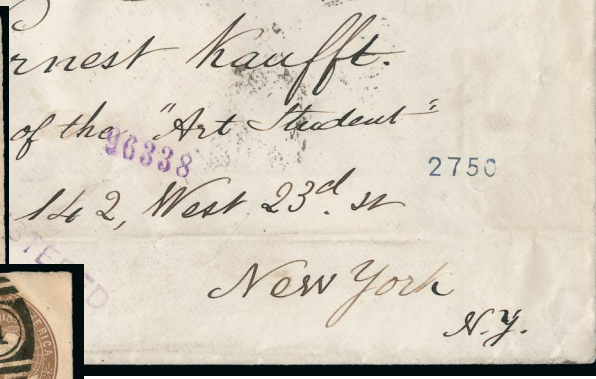 rnest Kaufft.
of the "Art Student"
96338
2750
142, West 23d. st
STERED
New York
N.Y.
ERICA